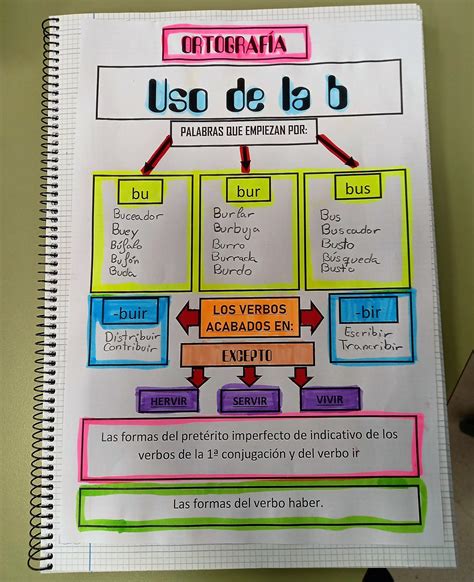 ORTOGRAFÍA
Uso de la b
PALABRAS QUE EMPIEZAN POR:
bu
Buceador
Buey
Búfalo
Bufón
Buda
bur
Burlar
Burbuja
Burro
Burrada
Burdo
bus
Bus
Buscador
Busto
Búsqueda
Busto
-buir
Distribuir
Contribuir
LOS VERBOS
ACABADOS EN:
-bir
Escribir
Trancribir
EXCEPTO
HERVIR
SERVIR
VIVIR
Las formas del pretérito imperfecto de indicativo de los
verbos de la 1ª conjugación y del verbo ir
Las formas del verbo haber.